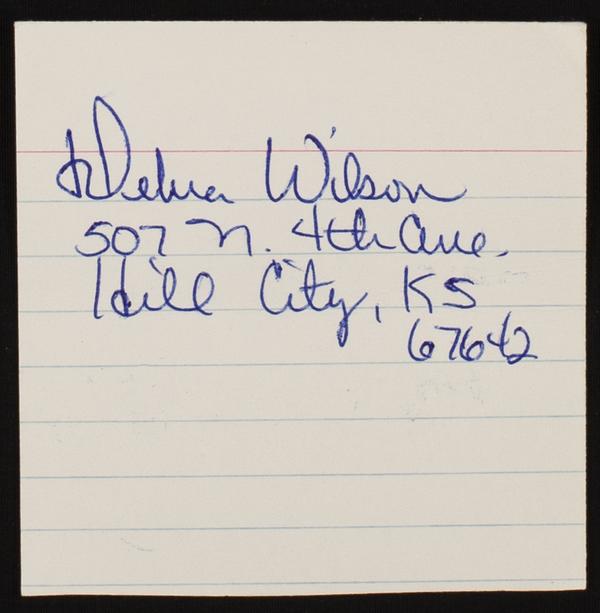 Debra Wilson
507 N. 4th Ave.
Hill City, KS
67642